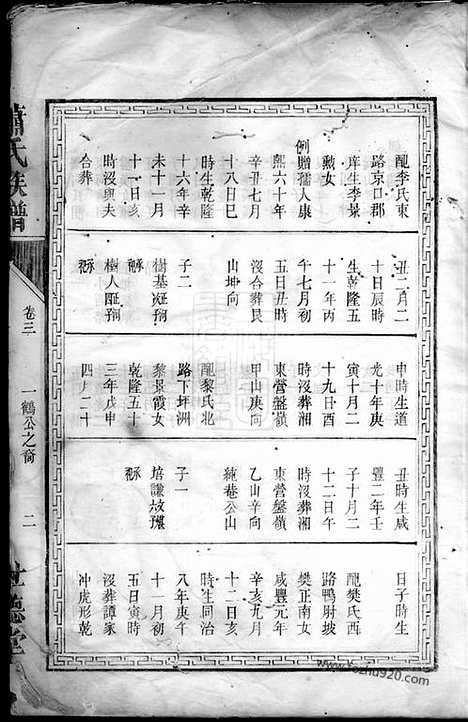 蕭氏族譜
卷三
一鶴公之裔
二
世德堂
配李氏東
路京口郡
庠生李景
勳女
例贈孺人康
熙六十年
辛丑七月
十八日巳
時生乾隆
十六年辛
未十一月
十一日亥
時沒與夫
合葬
丑二月二
十日辰時
生乾隆五
十一年丙
午七月初
五日丑時
沒合葬艮
山坤向
子二
樹基
嗣
樹人
嗣
申時生道
光十年庚
寅十月二
十九日酉
時沒葬湘
東營盤嶺
甲山庚向
配黎氏北
路下坪洲
黎景霞女
乾隆五十
三年戊申
四月二十
丑時生咸
豐二年壬
子十月二
十二日午
時沒葬湘
東營盤嶺
乙山辛向
純巷公山
子一
培謙
嗣
日子時生
配樊氏西
路鴨財坡
樊正南女
咸豐元年
辛亥九月
十二日亥
時生同治
八年庚午
十一月初
五日寅時
沒葬譚家
冲虎形乾
www.Yozhu920.com